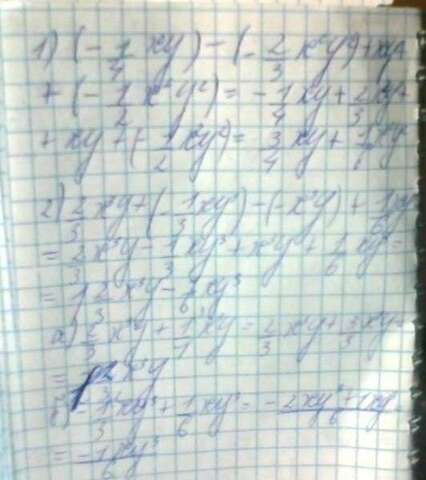 1) (- 1/4 xy) - (- 2/3 x²y²) + xy +
+ (- 1/2 x²y²) = - 1/4 xy + 2/3 x²y² +
+ xy + (- 1/2 x²y²) = 3/4 xy + 1/6 x²y²
2) 2/3 x³y + (- 1/3 xy³) - (- x³y) + 1/6 xy³
= 2/3 x³y - 1/3 xy³ + x³y + 1/6 xy³ =
= 1 2/3 x³y - 1/6 xy³
а) 2/3 x³y + 1/1 x³y = 2/3 x³y + 3/3 x³y =
= 1 2/3 x³y
б) - 1/3 xy³ + 1/6 xy³ = (- 2xy³ + 1xy³)/6
= - 1/6 xy³